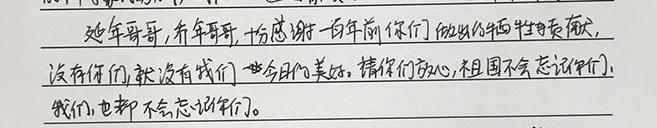 延年哥哥，乔年哥哥，十分感谢一百年前你们做出的牺牲与贡献，
没有你们，就没有我们今日的美好。请你们放心，祖国不会忘记你们，
我们，也都不会忘记你们。